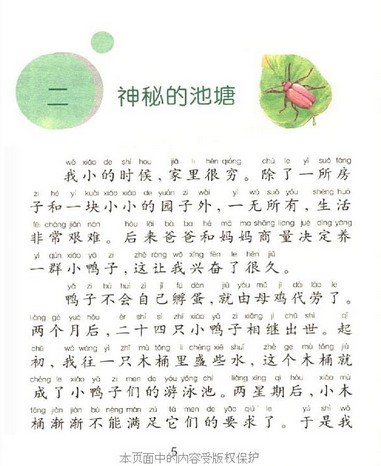 二
神秘的池塘
wǒ xiǎo de shí hou jiā li hěn qióng chú le yì suǒ fáng
我小的时候,家里很穷。除了一所房
zi hé yí kuài xiǎo xiǎo de yuán zi wài yì wú suǒ yǒu shēng huó
子和一块小小的园子外,一无所有,生活
fēi cháng jiān nán hòu lái bà ba hé mā ma shāng liang jué dìng yǎng
非常艰难。后来爸爸和妈妈商量决定养
yì qún xiǎo yā zi zhè ràng wǒ xīng fèn le hěn jiǔ
一群小鸭子,这让我兴奋了很久。
yā zi bú huì zì jǐ fū dàn jiù yóu mǔ jī dài láo le
鸭子不会自己孵蛋,就由母鸡代劳了。
liǎng gè yuè hòu èr shí sì zhī xiǎo yā zi xiāng jì chū shì qǐ
两个月后,二十四只小鸭子相继出世。起
chū wǒ wǎng yì zhī mù tǒng li chéng xiē shuǐ zhè ge mù tǒng jiù
初,我往一只木桶里盛些水,这个木桶就
chéng le xiǎo yā zi men de yóu yǒng chí liǎng xīng qī hòu xiǎo mù
成了小鸭子们的游泳池。两星期后,小木
tǒng jiàn jiàn bù néng mǎn zú tā men de yāo qiú le yú shì wǒ
桶渐渐不能满足它们的要求了。于是我
5
本页面中的内容受版权保护